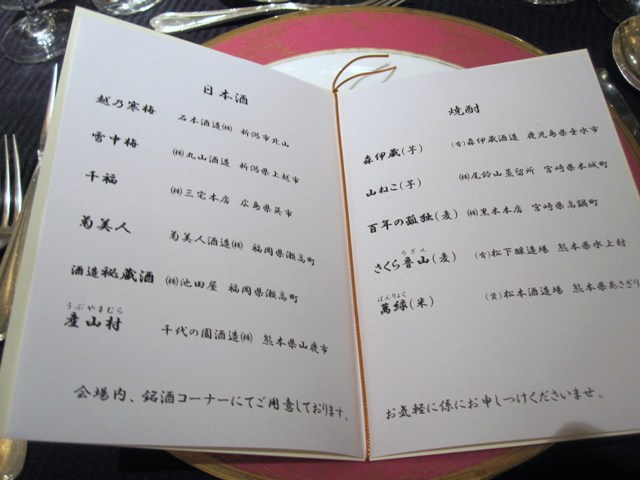 日本酒
越乃寒梅 石本酒造㈱ 新潟市北山
雪中梅 ㈱丸山酒造 新潟県上越市
千福 ㈱三宅本店 広島県呉市
菊美人 菊美人酒造㈱ 福岡県瀬高町
酒造秘蔵酒 ㈱池田屋 福岡県瀬高町
うぶやまむら
産山村 千代の園酒造㈱ 熊本県山鹿市
会場内、銘酒コーナーにてご用意しております。
焼酎
森伊蔵(芋) ㈲森伊蔵酒造 鹿児島県垂水市
山ねこ(芋) ㈱尾鈴山蒸留所 宮崎県木城町
百年の孤独(麦) ㈱黒木本店 宮崎県高鍋町
さくら(麦) ㈲松下醸造場 熊本県水上村
ばんりょく
萬緑(米) ㈾松本酒造場 熊本県あさぎり
お気軽に係にお申しつけくださいませ。